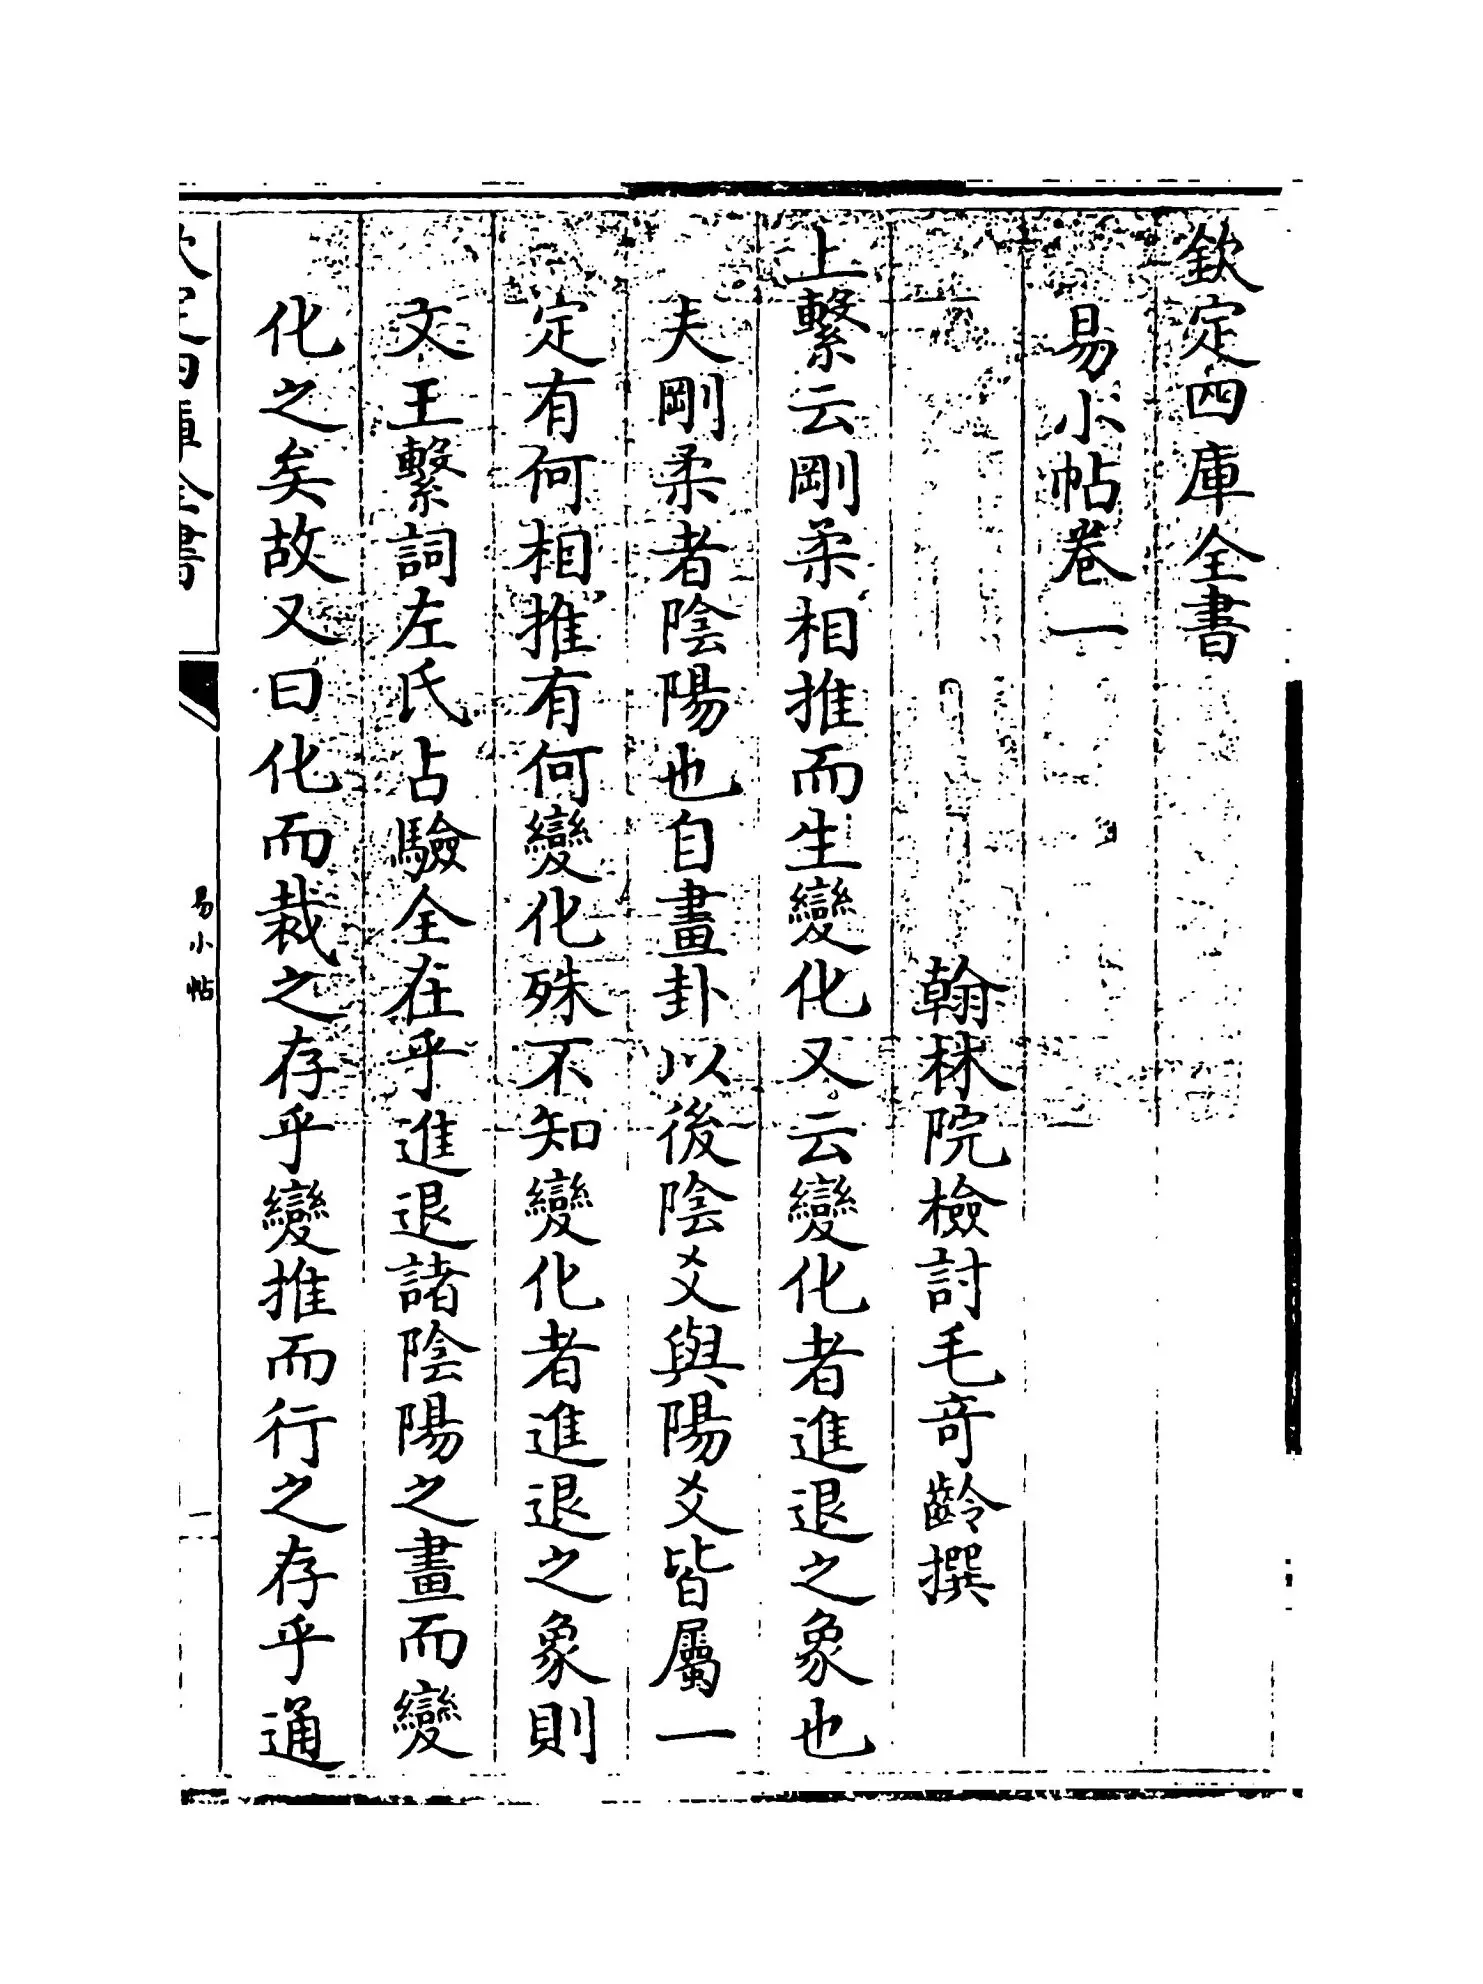 欽定四庫全書
易小帖卷一
翰林院檢討毛奇齡撰
上繫云剛柔相推而生變化又云變化者進退之象也
夫剛柔者陰陽也自畫卦以後陰爻與陽爻皆屬一
定有何相推有何變化殊不知變化者進退之象則
文王繫詞左氏占驗全在乎進退諸陰陽之畫而變
化之矣故又曰化而裁之存乎變推而行之存乎通
欽定四庫全書
易小帖
一